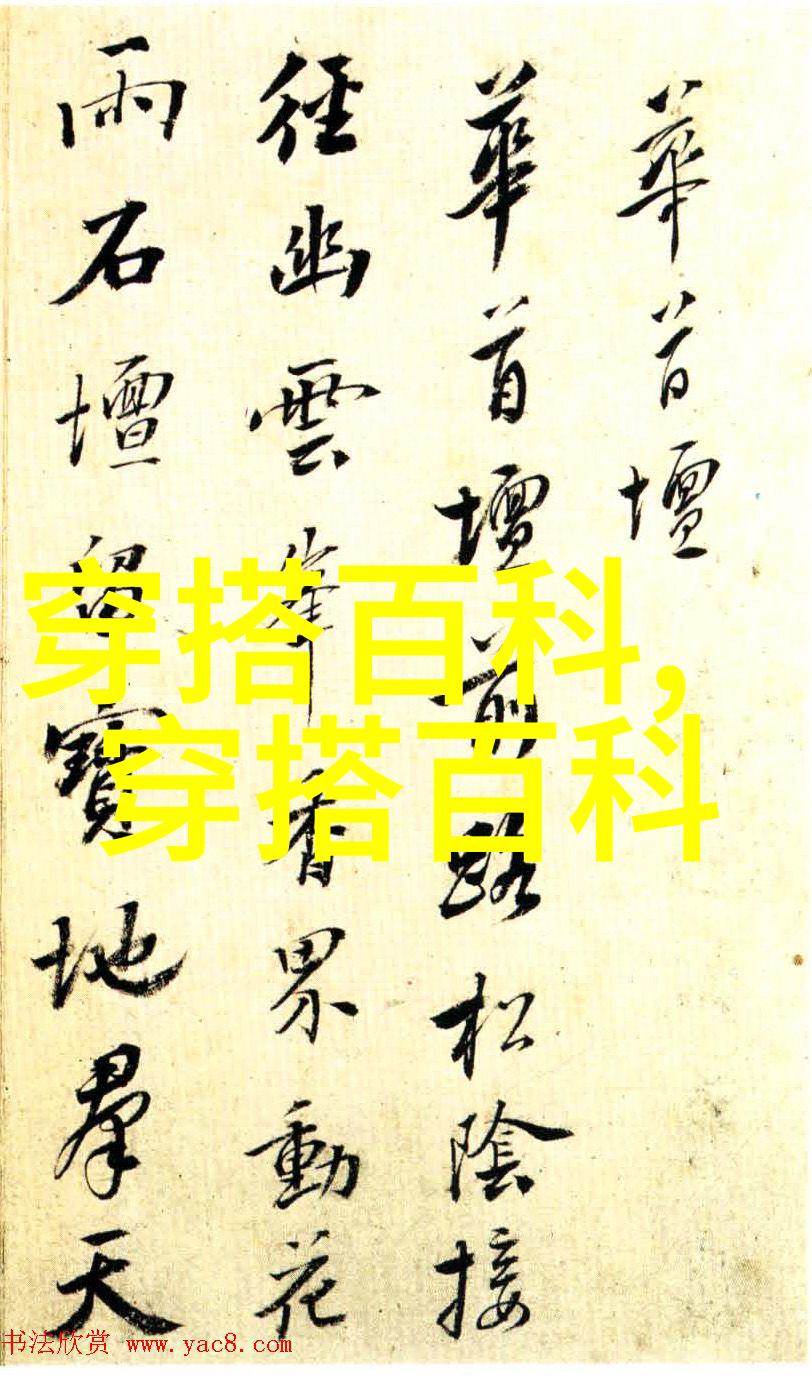 華首壇
華首壇前路松陰接
徑幽雲峯香界動花
雨石壇留寶地羣天
穿搭百科,
穿搭百科
书法欣赏 www.yac8.com